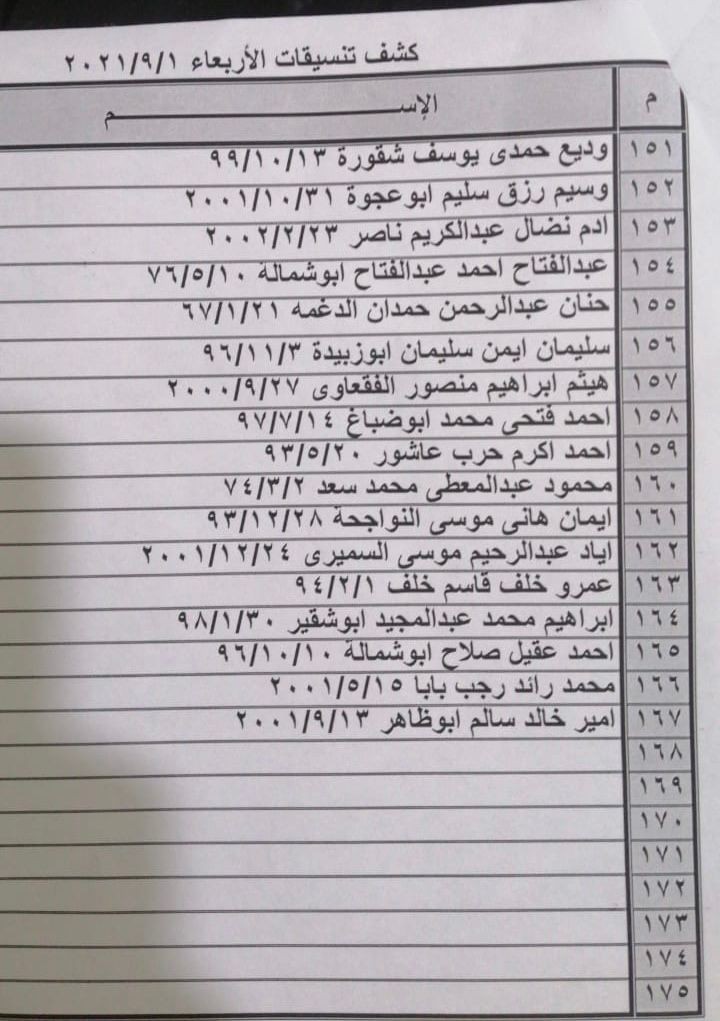 كشف تنسيقات الأربعاء ٢٠٢١/٩/١
م الإســـــــــــــــــــــــــــم
١٥١ وديع حمدى يوسف شقورة ٩٩/١٠/١٣
١٥٢ وسيم رزق سليم ابوعجوة ٢٠٠١/١٠/٣١
١٥٣ ادم نضال عبدالكريم ناصر ٢٠٠٢/٢/٢٣
١٥٤ عبدالفتاح احمد عبدالفتاح ابوشمالة ٧٦/٥/١٠
١٥٥ حنان عبدالرحمن حمدان الدغمه ٦٧/١/٢١
١٥٦ سليمان ايمن سليمان ابوزبيدة ٩٦/١١/٣
١٥٧ هيثم ابراهيم منصور الفقعاوى ٢٠٠٠/٩/٢٧
١٥٨ احمد فتحى محمد ابوضباغ ٩٧/٧/١٤
١٥٩ احمد اكرم حرب عاشور ٩٣/٥/٢٠
١٦٠ محمود عبدالمعطى محمد سعد ٧٤/٣/٢
١٦١ ايمان هانى موسى النواجحة ٩٣/١٢/٢٨
١٦٢ اياد عبدالرحيم موسى السميرى ٢٠٠١/١٢/٢٤
١٦٣ عمرو خلف قاسم خلف ٩٤/٢/١
١٦٤ ابراهيم محمد عبدالمجيد ابوشقير ٩٨/١/٣٠
١٦٥ احمد عقيل صلاح ابوشمالة ٩٦/١٠/١٠
١٦٦ محمد رائد رجب بابا ٢٠٠١/٥/١٥
١٦٧ امير خالد سالم ابوظاهر ٢٠٠١/٩/١٣
١٦٨
١٦٩
١٧٠
١٧١
١٧٢
١٧٣
١٧٤
١٧٥